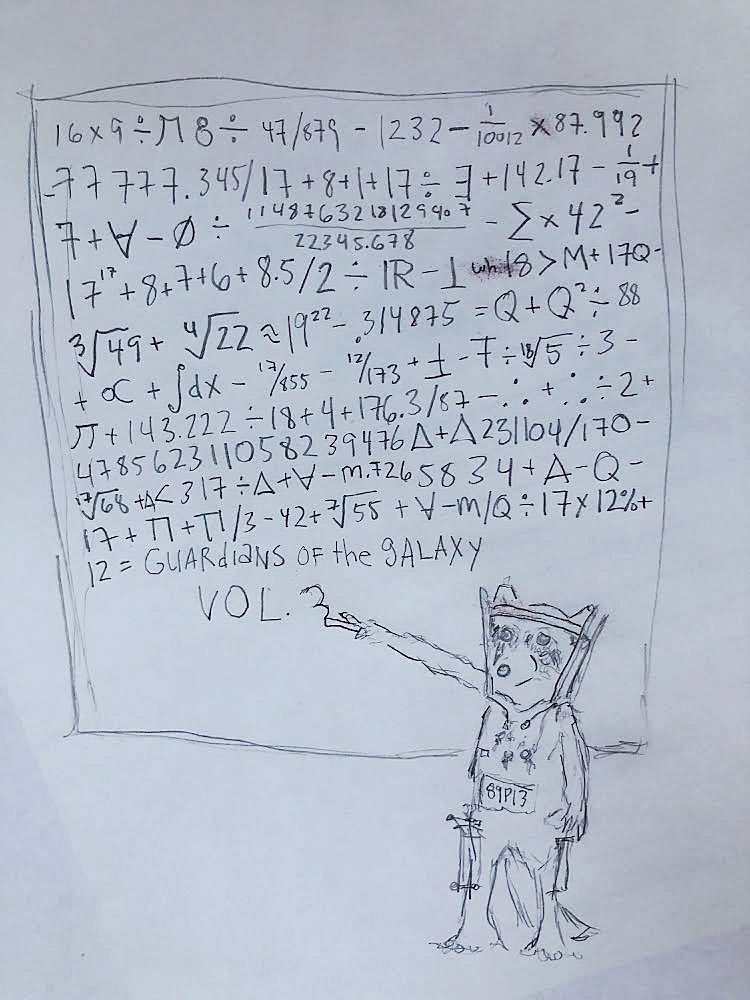 16×9÷π8÷ 47/879 - 1232 - 1/10012 × 87.992
-77777.345/17+8+1+17÷∃+142.17 - 1/19 +
7+∀-Ø÷ 1148763218129907/22345.678 - Σ×42² -
17¹⁷+8+7+6+8.5/2÷ℝ-⊥ 18>M+17Q-
³√49+ ⁴√22≈19²²-.314875 =Q+Q²÷88
+∝+∫dx - 17/855 - 12/173 + ⊥ - 7÷¹⁸√5÷3 -
π+143.222÷18+4+176.3/87-∴+∴÷2+
4785623110582 39476Δ+Δ231104/170-
¹⁷√68+Δ<317÷Δ+∀-m.7265834+A-Q-
17+Π+Π/3-42+⁷√55+∀-m/Q÷17×12%+
12= GUARdiANS OF the gALAXY
VOL. 3
89P13